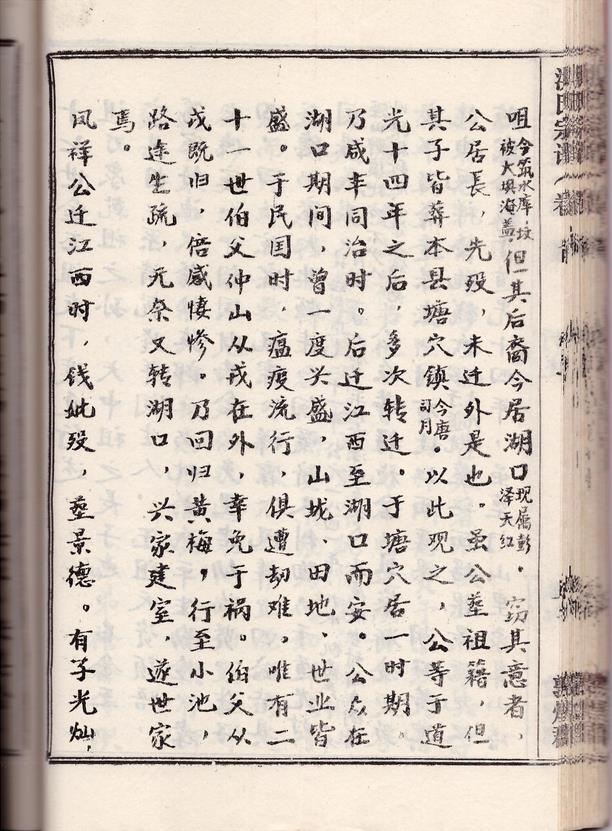 咀今筑水库，坟被大坝淹盖，但其后裔今居湖口现属彭泽天红。窃其意者，
公居長，先殁，未迁外是也。虽公茔祖籍，但
其子皆葬本县塘穴鎮今唐司月。以此观之，公等于道
光十四年之后，多次转迁。于塘穴居一时期。
乃咸丰同治时。后迁江西至湖口而安。公众在
湖口期间，曾一度兴盛，山城、田地、世业皆
盛。于民国时，瘟疫流行，俱遭劫难，唯有二
十一世伯父仲山从戎在外，幸免于祸。伯父从
戎既归，倍感悽惨。乃回归黄梅，行至小池，
路途生疏，无奈又转湖口，兴家建室，遂世家
焉。
凤祥公迁江西时，钱妣殁，茔景德。有子光灿，
氏宗谱 卷